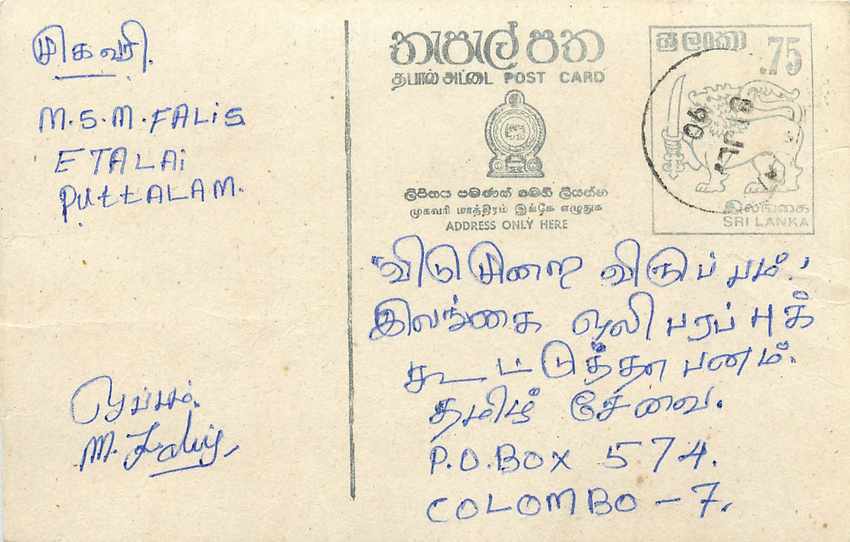 முகவரி.
M.S.M.FALIS
ETALAI
PUTTALAM.
ඔප්පම்.
M. Falis,
තැපැල් පත
தபால் அட்டை POST CARD
ලිපිනය පමණක් මෙහි ලියන්න
முகவரி மாத்திரம் இங்கே எழுதுக
ADDRESS ONLY HERE
ශ්‍රී ලංකා
.75
இலங்கை
SRI LANKA
"விடுமுறை விருப்பம்."
இலங்கை ஒலி பரப்புக்
கூட்டுத்தாபனம்.
தமிழ் சேவை.
P.O.BOX 574.
COLOMBO-7.